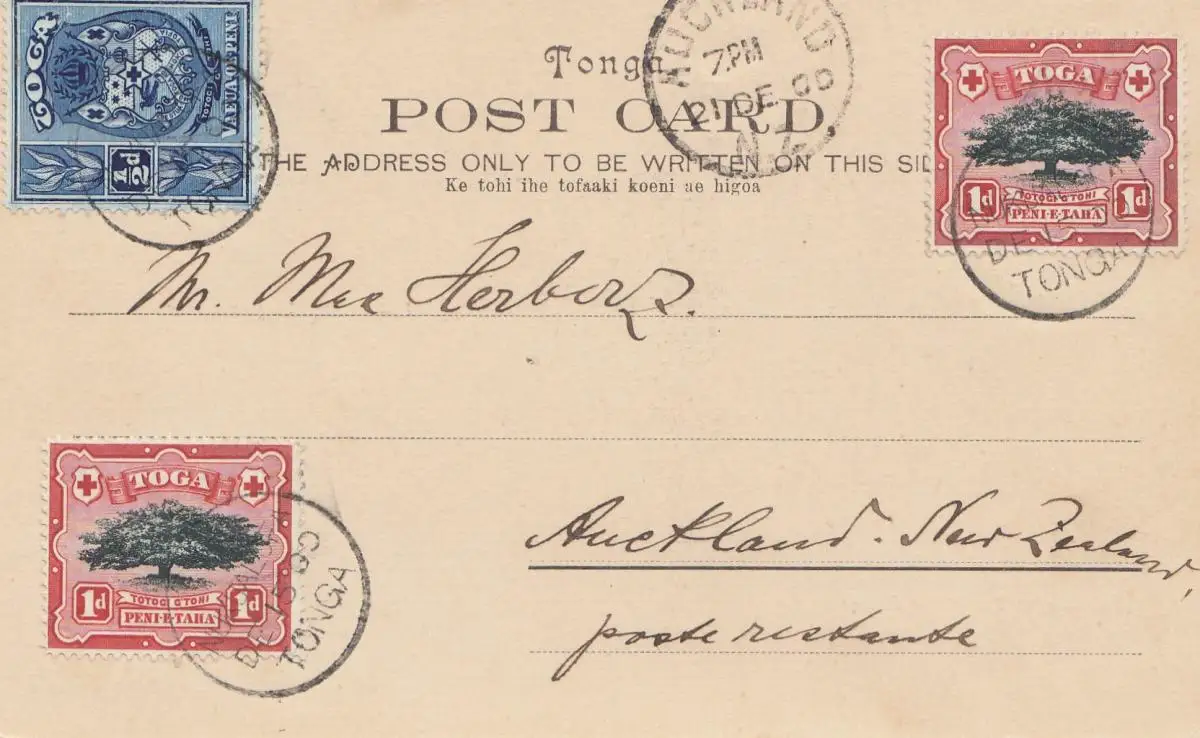 TOGA
VAEUA OE PENI
½d
TONGA
Tonga
POST CARD.
THE ADDRESS ONLY TO BE WRITTEN ON THIS SID
Ke tohi ihe tofaaki koeni ae higoa
AUCKLAND
7PM
21 DE 00
N.Z
TOGA
TOTOGI O TOHI
1d PENI-E-TAHA 1d
DE
TONGA
Mr. Max Herborz.
TOGA
TOTOGI O TOHI
1d PENI-E-TAHA 1d
DE 15 00
TONGA
Auckland. New Zealand,
poste restante